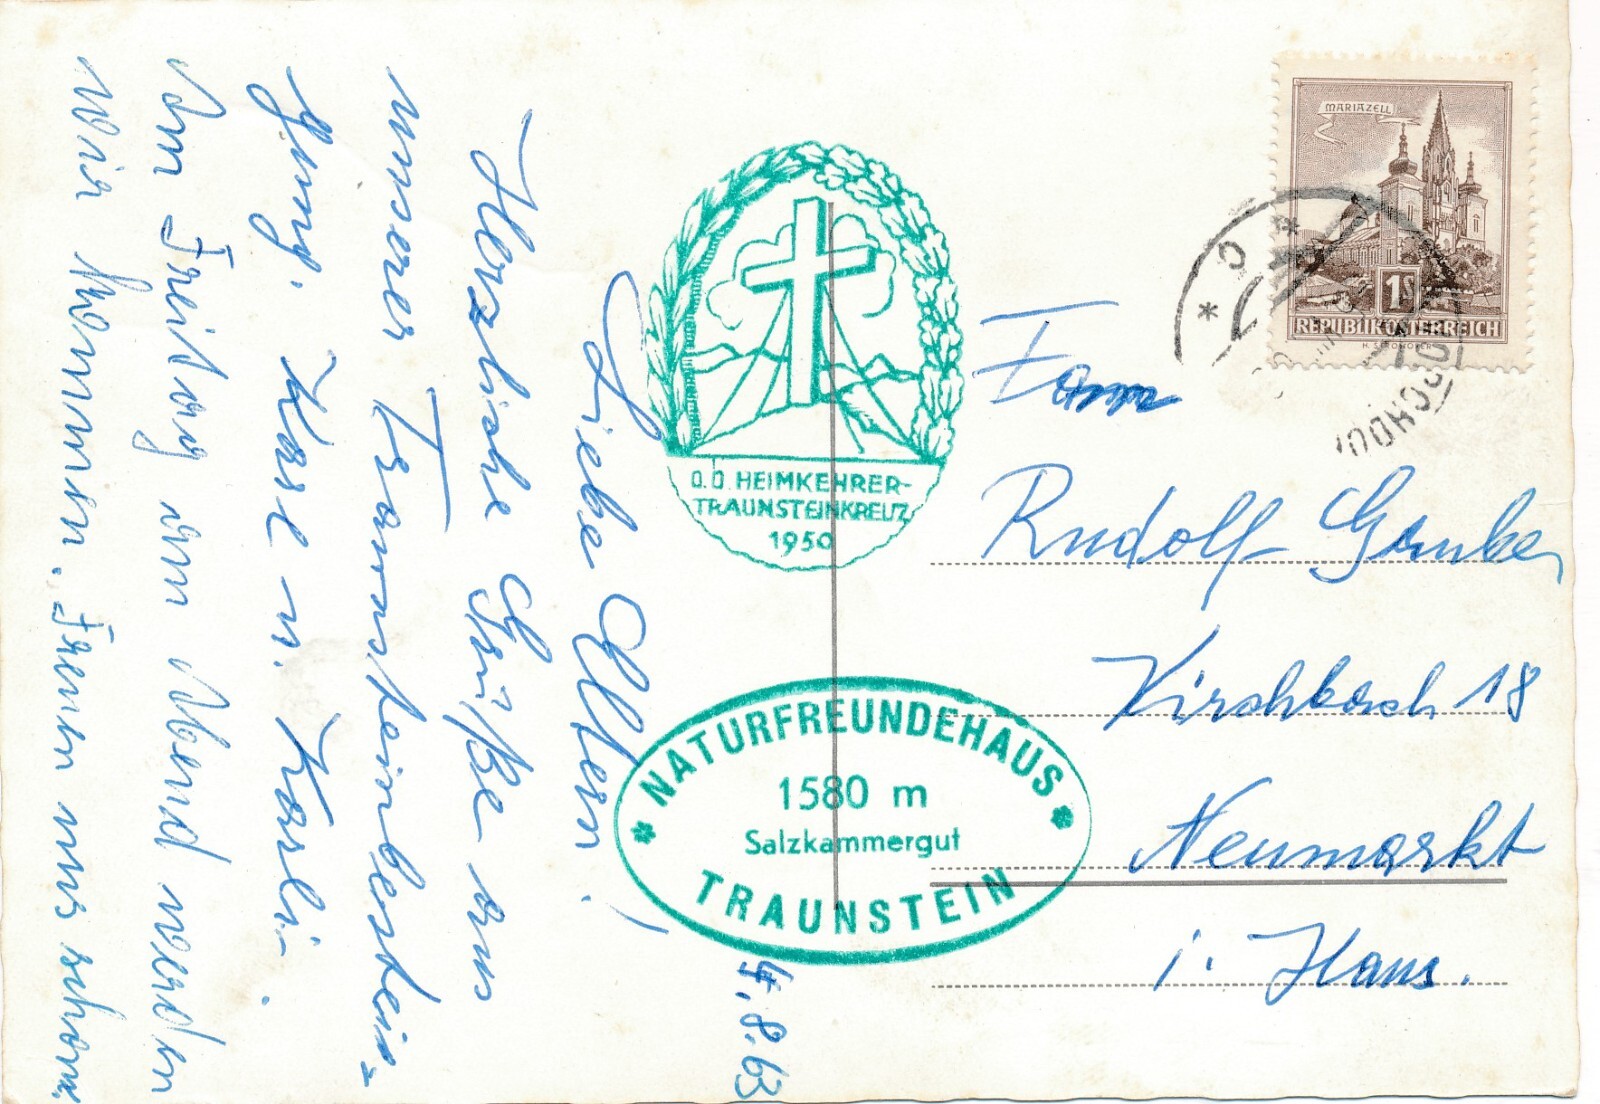 4. 8. 63
Liebe Eltern!
Herzliche Grüße aus
unserer Traunsteinbestei-
gung. Karl u. Karli.
Am Freitag am Abend werden
wir kommen. Freuen uns schon.
O.Ö. HEIMKEHRER-
TRAUNSTEINKREUZ
1950
* NATURFREUNDEHAUS *
1580 m
Salzkammergut
TRAUNSTEIN
MARIAZELL
1S
REPUBLIK ÖSTERREICH
Fam
Rudolf
Kirchbach 18
Neumarkt
i. Haus.